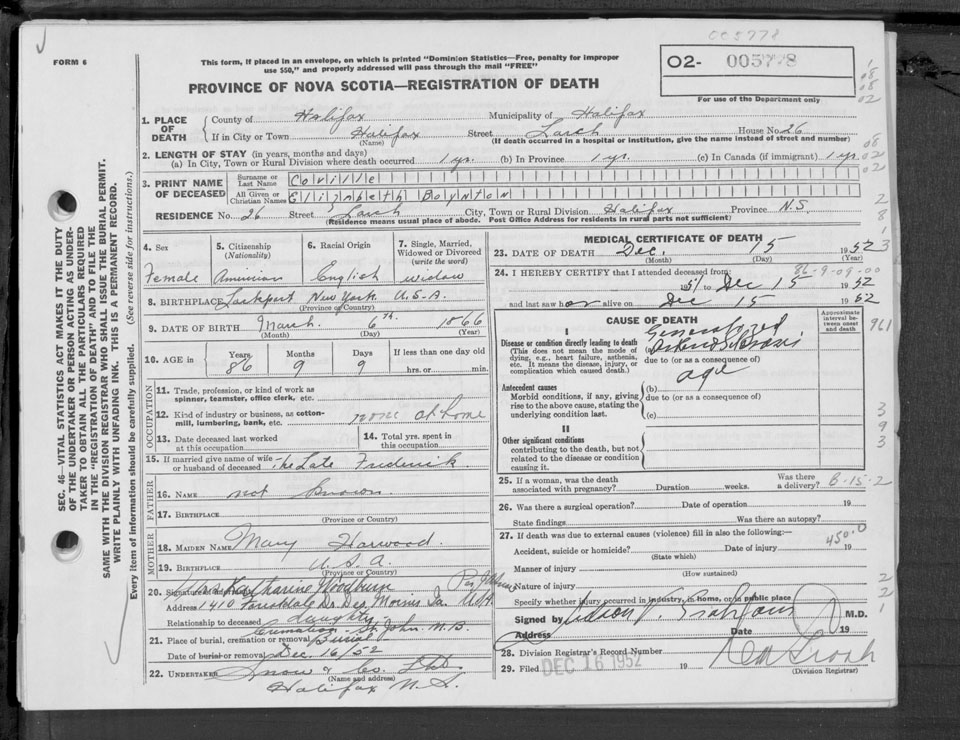 005778
FORM 6
This form, if placed in an envelope, on which is printed "Dominion Statistics—Free, penalty for improper
use $50," and properly addressed will pass through the mail "FREE"
O2- 005778
For use of the Department only
PROVINCE OF NOVA SCOTIA—REGISTRATION OF DEATH
1. PLACE OF DEATH
County of Halifax Municipality of Halifax
If in City or Town Halifax Street Larch House No. 26
(Name) (If death occurred in a hospital or institution, give the name instead of street and number)
2. LENGTH OF STAY (in years, months and days)
(a) In City, Town or Rural Division where death occurred 1 yr. (b) In Province 1 yr. (c) In Canada (if immigrant) 1 yr.
3. PRINT NAME OF DECEASED
Surname or Last Name Coville
All Given or Christian Names Elizabeth Boynton
RESIDENCE No. 26 Street Larch City, Town or Rural Division Halifax Province N.S.
(Residence means usual place of abode. Post Office Address for residents in rural parts not sufficient)
4. Sex
Female
5. Citizenship
(Nationality)
American
6. Racial Origin
English
7. Single, Married,
Widowed or Divorced
(write the word)
widow
8. BIRTHPLACE Lockport New York U.S.A.
(Province or Country)
9. DATE OF BIRTH March 6th 1866
(Month) (Day) (Year)
10. AGE in
Years Months Days If less than one day old
86 9 9 hrs. or min.
OCCUPATION
11. Trade, profession, or kind of work as
spinner, teamster, office clerk, etc.
12. Kind of industry or business, as cotton-
mill, lumbering, bank, etc. none at home
13. Date deceased last worked
at this occupation
14. Total yrs. spent in
this occupation
15. If married give name of wife
or husband of deceased the Late Frederick
FATHER
16. Name not known
17. BIRTHPLACE
(Province or Country)
MOTHER
18. MAIDEN NAME Mary Harwood
19. BIRTHPLACE U.S.A.
(Province or Country)
20. Signature of Mrs Katharine Woodburn
Address 1410 Dr. Des Moines Ia. U.S.A.
Relationship to deceased daughter
Cremation St John N.B.
21. Place of burial, cremation or removal Burial
Date of burial or removal Dec. 16/52
22. UNDERTAKER Snow & Co. Ltd.
(Name and address)
Halifax N.S.
MEDICAL CERTIFICATE OF DEATH
23. DATE OF DEATH Dec. 15 1952
(Month) (Day)
86-9-09-00
24. I HEREBY CERTIFY that I attended deceased from
1951 to Dec 15 1952
and last saw her alive on Dec 15 1952
CAUSE OF DEATH
Approximate
interval be-
tween onset
and death
I
Disease or condition directly leading to death
(This does not mean the mode of
dying, e.g., heart failure, asthenia,
etc. It means the disease, injury, or
complication which caused death.)
(a) Generalized
due to (or as a consequence of)
age
Antecedent causes
Morbid conditions, if any, giving
rise to the above cause, stating the
underlying condition last.
(b)
due to (or as a consequence of)
(c)
II
Other significant conditions
contributing to the death, but not
related to the disease or condition
causing it.
25. If a woman, was the death
associated with pregnancy? Duration weeks. Was there
a delivery? 6-15-2
26. Was there a surgical operation? Date of operation 19
State findings Was there an autopsy?
27. If death was due to external causes (violence) fill in also the following:—
450.0
Accident, suicide or homicide? Date of injury 19
(State which)
Manner of injury
(How sustained)
Nature of injury
Specify whether injury occurred in industry, in home, or in public place
Signed by M.D.
Address Date 19
28. Division Registrar's Record Number
29. Filed DEC 16 1952 19
(Division Registrar)
SEC. 46—VITAL STATISTICS ACT MAKES IT THE DUTY
OF THE UNDERTAKER OR PERSON ACTING AS UNDER-
TAKER TO OBTAIN ALL THE PARTICULARS REQUIRED
IN THE "REGISTRATION OF DEATH" AND TO FILE THE
SAME WITH THE DIVISION REGISTRAR WHO SHALL ISSUE THE BURIAL PERMIT.
WRITE PLAINLY WITH UNFADING INK. THIS IS A PERMANENT RECORD.
Every item of information should be carefully supplied. (See reverse side for instructions.)
961